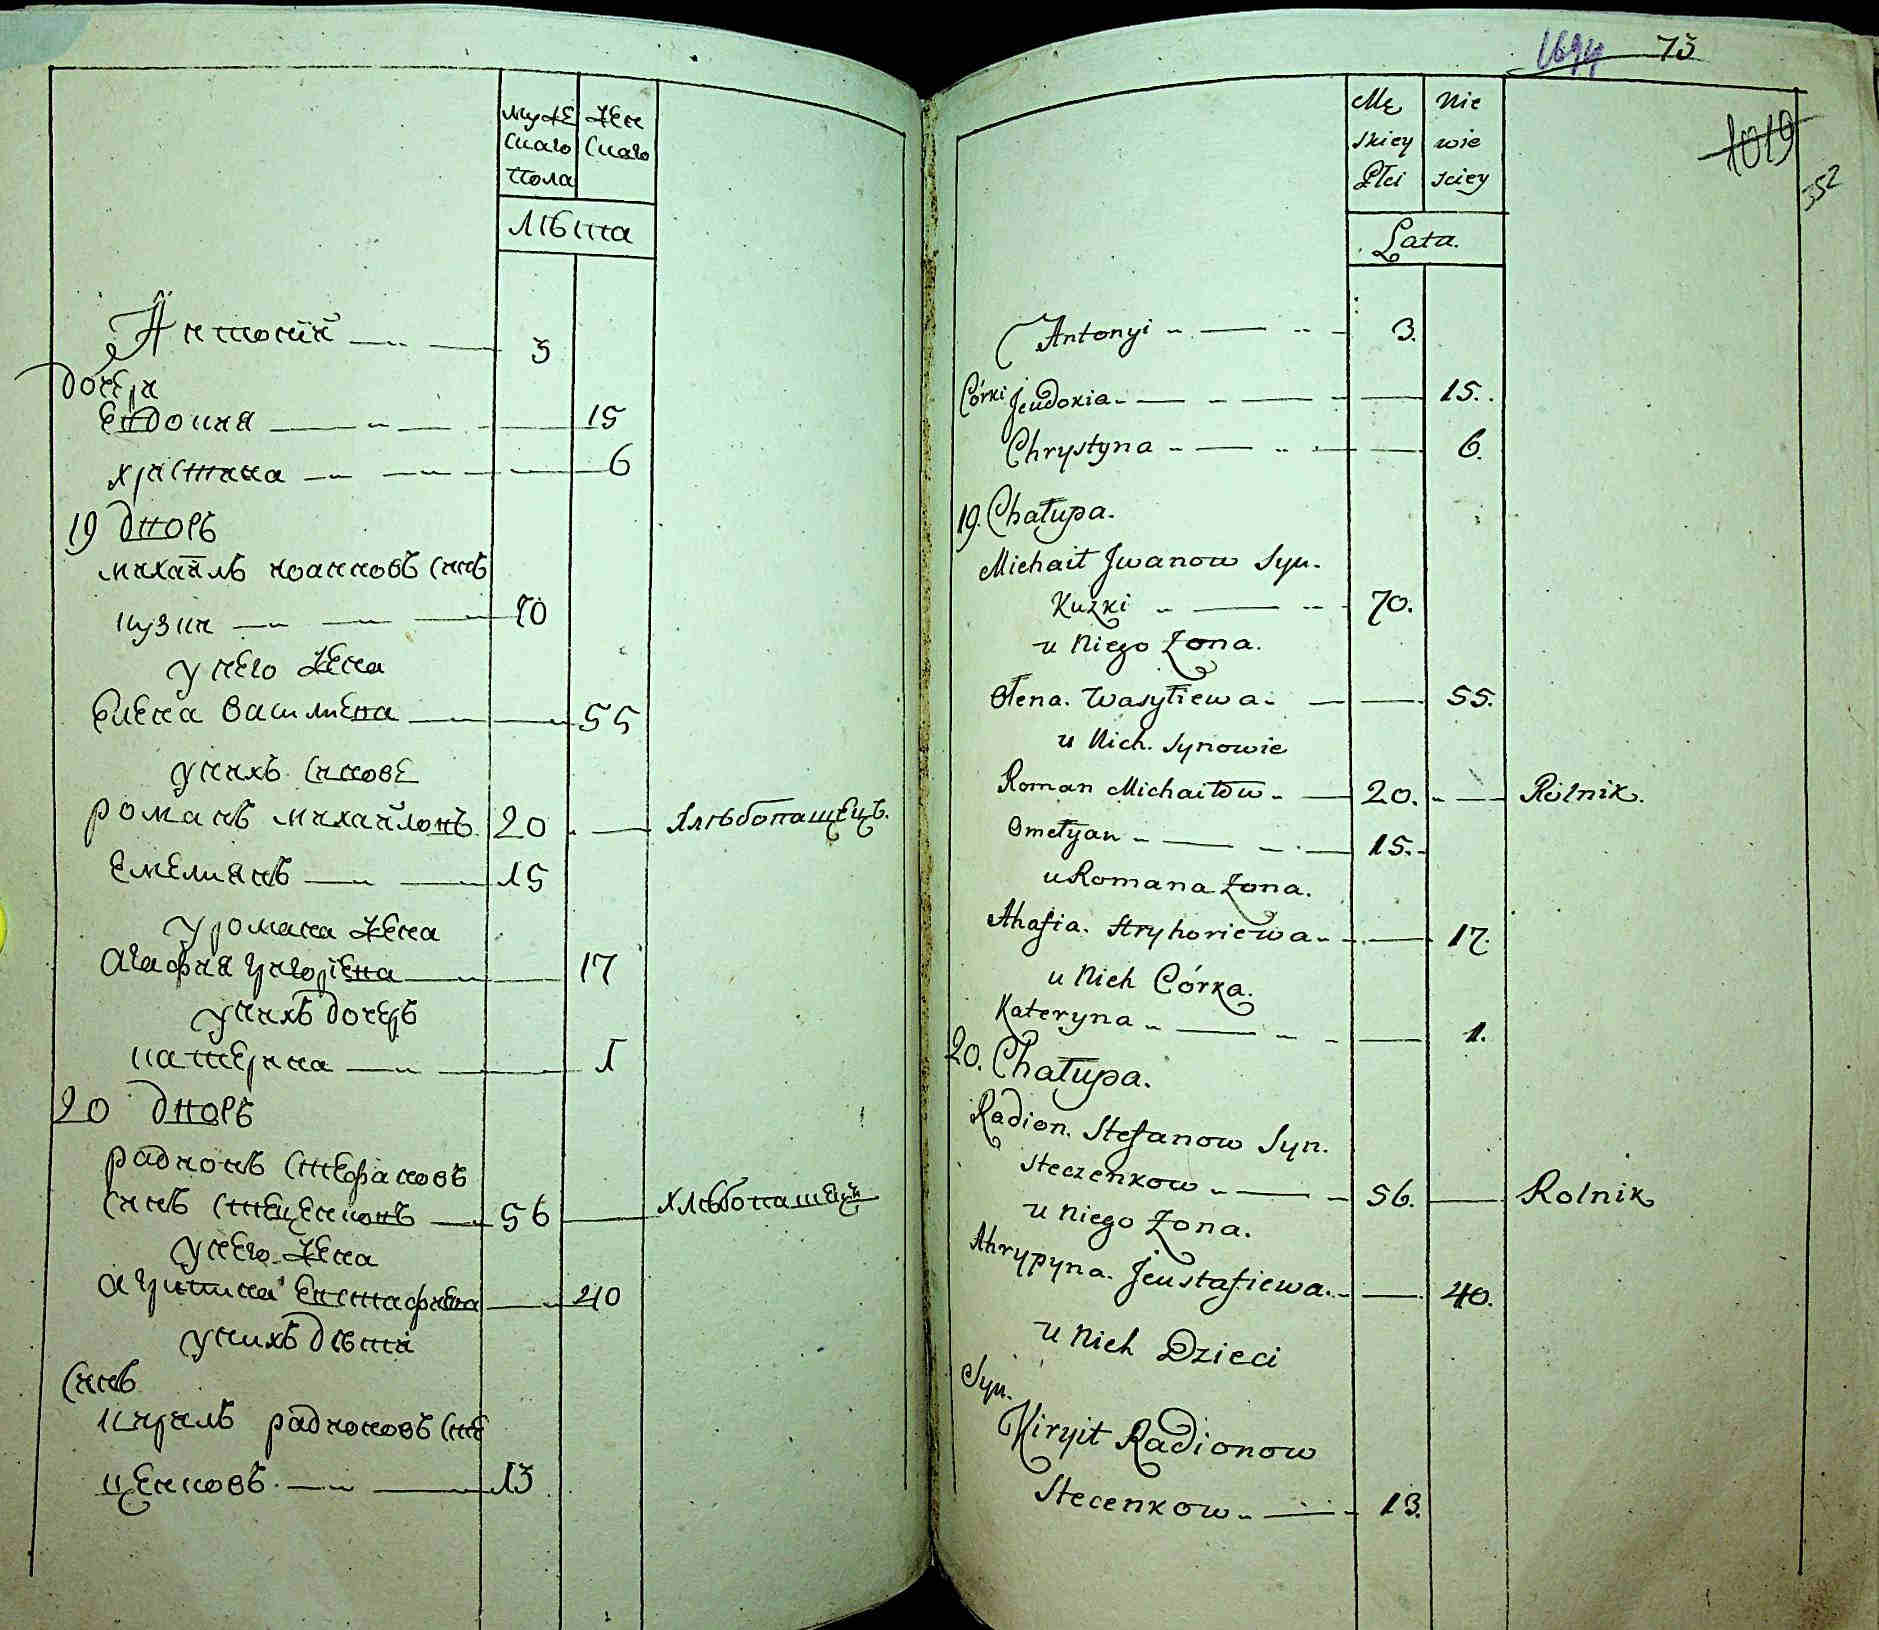 муже жен
скаго скаго
пола
лѣта
Антоній 3
дочери
Евдокия 15
христина 6
19 дворъ
михайлъ иоанновъ синъ
кузки 70
у него жена
Елена Василиева 55
у нихъ синове
романъ михайловъ 20 хлѣбопашецъ.
Емелиянъ 15
у романа жена
агафия григориева 17
у нихъ дочеръ
катерина 1
20 дворъ
радионъ стефановъ
синъ стеценковъ 56 хлѣбопашецъ
у него жена
агрипина Евстафиева 40
у нихъ дѣти
синъ
кирилъ радионовъ сте
ценковъ. 13
1694 73
1019
352
Mę Nie
skiey wie
Płci sciey
Lata.
Antonyi 3.
Córki Jeudoxia 15.
Chrystyna 6.
19. Chałupa.
Michaił Jwanow Syn.
Kuzki 70.
u Niego Zona.
Ołena. Wasyliewa 55.
u Nich. Synowie
Roman Michaiłow 20. Rolnik.
Omełyan 15.
u Romana Zona.
Ahafia. Hryhoriewa 17.
u Nich Córka.
Kateryna 1.
20. Chałupa.
Radion. Stefanow Syn.
Steczenkow 56. Rolnik
u Niego Zona.
Ahrypyna. Jeustafiewa. 40.
u Nich Dzieci
Syn.
Kirył Radionow
Stecenkow 13.